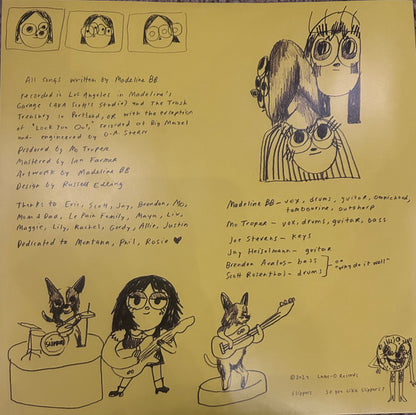 All songs written by Madeline BB
Recorded in Los Angeles in Madeline's
Garage (AKA Song's Studio) and The Trash
Treasury in Portland, OR with the exception
of "Lock You Out," recorded at Big Mazel
and engineered by D.A. Stern
Produced by Mo Troper
Mastered by Ian Farmer
Artwork by Madeline BB
Design by Russell Edling
Thanks to Eric, Scott, Jay, Brendan, Mo,
Mom & Dad, Le Pain Family, Maya, Liv,
Maggie, Lily, Rachel, Gordy, Allie, Justin
Dedicated to Montana, Phil, Rosie
Madeline BB - vox, drums, guitar, omnichord,
tambourine, autoharp
Mo Troper - vox, drums, guitar, bass
Joe Stevens - keys
Jay Heiselmann - guitar
Brendan Avalos - bass
Scott Rosenthal - drums
on "why do it well"
Slippers
©2024 Lame-O Records
Slippers So you like slippers?